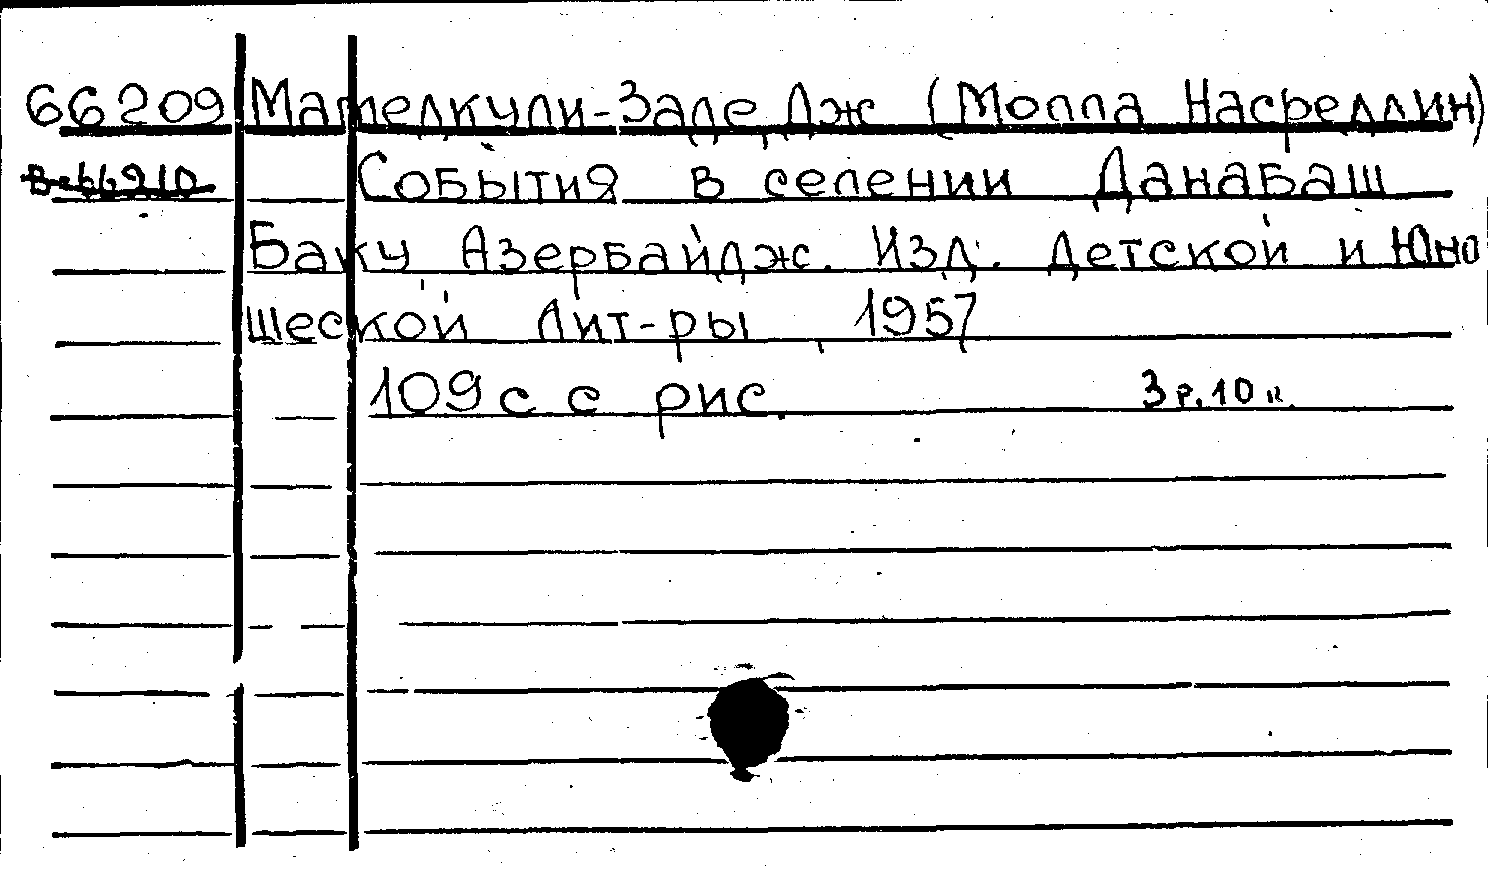 66209 Мамедкули-Заде Дж (Молла Насреддин)
События в селении Данабаш
Баку Азербайдж. Изд. детской и Юно
шеской Лит-ры, 1957
109 с с рис. 3 р. 10 к.